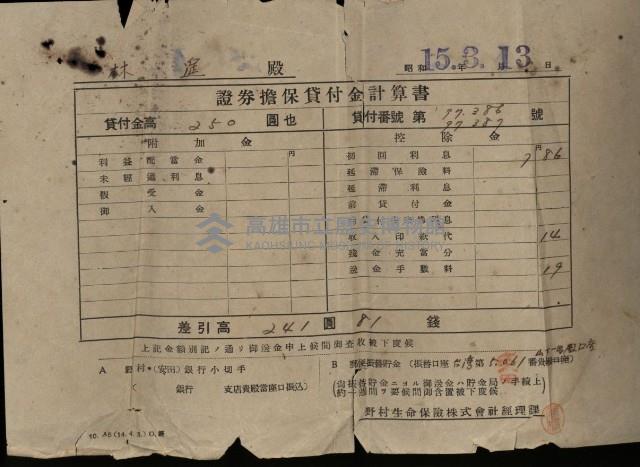 林 殿
昭和 15.3.13 年 月 日
證券擔保貸付金計算書
貸付金高 250 圓也
貸付番號 第 97.386 97.387 號
附加金
控除金
利益配當金 円
初回利息 円 7 86
未經過利息
延滯保險料
假受金
延滯利息
御入金
前貸付金
息
收入印紙代 14
殘金充當分
送金手數料 19
高雄市立歷史博物館
KAOHSIUNG MUSEUM OF HISTORY
差引高 241 圓 81 錢
上記金額別記ノ通リ御送金申上候間御查收被下度候
A 野村・(安田)銀行小切手
( 銀行 支店貴殿當座口振込)
B 郵便振替貯金 (振替口座 臺灣 第 番貴殿口座)
(尚振替貯金ニヨル御送金ハ貯金局ノ手續上
約一週間ヲ要候間御含置被下度候)
野村生命保險株式會社經理課